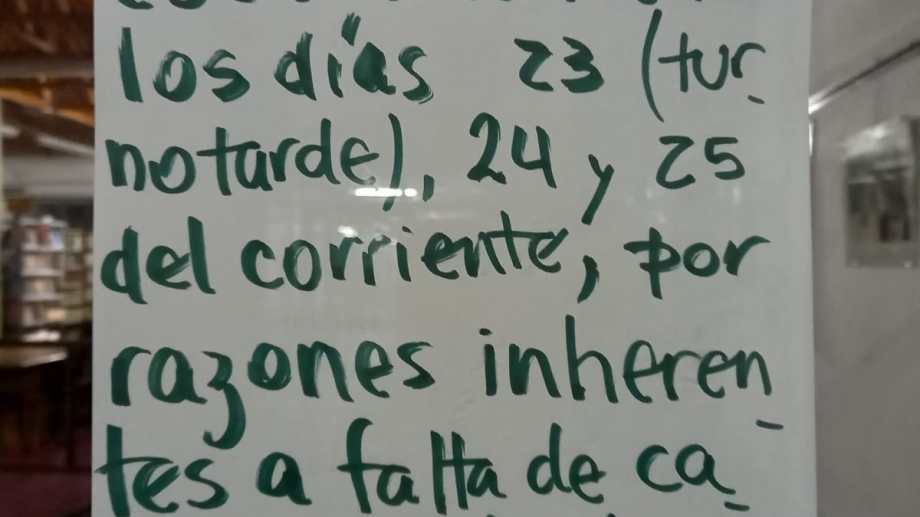 los días 23 (tur-
no tarde), 24 y 25
del corriente, por
razones inheren-
tes a falta de ca-